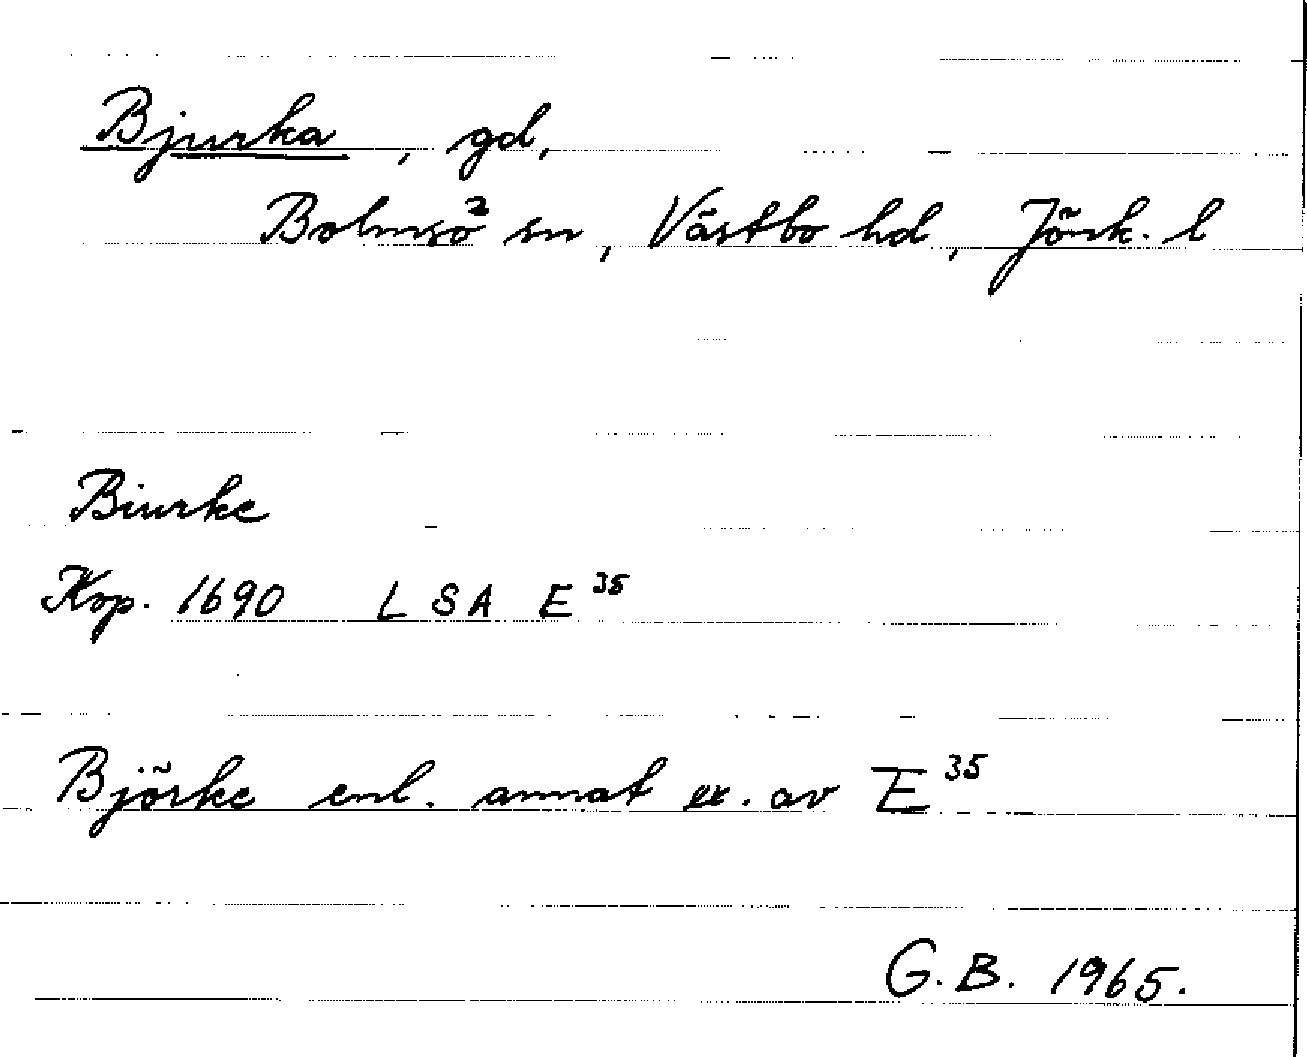 Bjurka, gd,
Bolmsö sn, Västbo hd, Jönk. l
Biurke
Kop. 1690 LSA E 35
Björke enl. annat ex. av E 35
G.B. 1965.